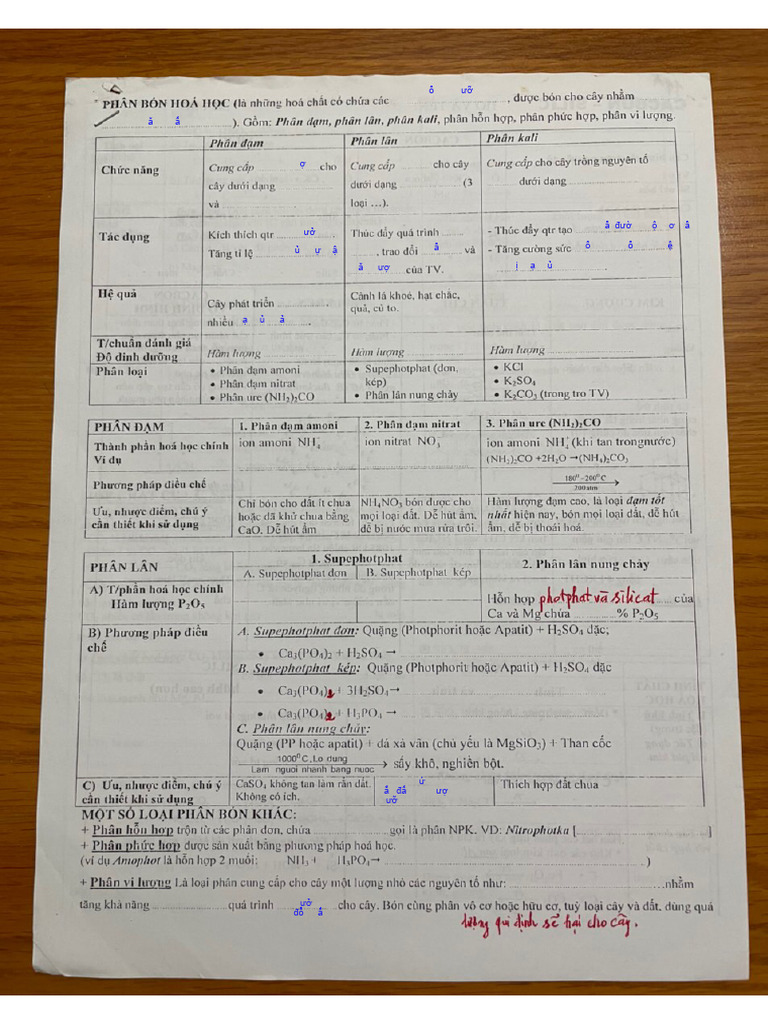 * PHÂN BÓN HOÁ HỌC (là những hoá chất có chứa các ố ưỡ, được bón cho cây nhằm
ằ ấ). Gồm: Phân đạm, phân lân, phân kali, phân hỗn hợp, phân phức hợp, phân vi lượng.
Phân đạm Phân lân Phân kali
Chức năng Cung cấp ơ cho Cung cấp cho cây Cung cấp cho cây trồng nguyên tố
cây dưới dạng dưới dạng (3 dưới dạng
và loại ...).
Tác dụng Kích thích qtr ưở. Thúc đẩy quá trình - Thúc đẩy qtr tạo ấ đườ ộ ơ ầ
Tăng tỉ lệ ủ ự ậ, trao đổi ấ và - Tăng cường sức ố ố ệ
ả ượ của TV. ị ạ ủ
Hệ quả Cây phát triển Cành lá khoẻ, hạt chắc,
nhiều ạ ủ ả. quả, củ to.
T/chuẩn đánh giá
Độ dinh dưỡng Hàm lượng Hàm lượng Hàm lượng
Phân loại • Phân đạm amoni • Supephotphat (đơn, • KCl
• Phân đạm nitrat kép) • K₂SO₄
• Phân ure (NH₂)₂CO • Phân lân nung chảy • K₂CO₃ (trong tro TV)
PHÂN ĐẠM 1. Phân đạm amoni 2. Phân đạm nitrat 3. Phân ure (NH₂)₂CO
Thành phần hoá học chính ion amoni NH₄⁺ ion nitrat NO₃⁻ ion amoni NH₄⁺ (khi tan trongnước)
Ví dụ (NH₂)₂CO +2H₂O →(NH₄)₂CO₃
Phương pháp điều chế 180⁰-200⁰C 200 atm →
Ưu, nhược điểm, chú ý Chỉ bón cho đất ít chua NH₄NO₃ bón được cho Hàm lượng đạm cao, là loại đạm tốt
cần thiết khi sử dụng hoặc đã khử chua bằng mọi loại đất. Dễ hút ẩm, nhất hiện nay, bón mọi loại đất, dễ hút
CaO. Dễ hút ẩm dễ bị nước mưa rửa trôi. ẩm, dễ bị thoái hoá.
PHÂN LÂN 1. Supephotphat 2. Phân lân nung chảy
A. Supephotphat đơn B. Supephotphat kép
A) T/phần hoá học chính Hỗn hợp photphat và silicat của
Hàm lượng P₂O₅ Ca và Mg chứa % P₂O₅
B) Phương pháp điều chế A. Supephotphat đơn: Quặng (Photphorit hoặc Apatit) + H₂SO₄ đặc;
• Ca₃(PO₄)₂ + H₂SO₄ →
B. Supephotphat kép: Quặng (Photphorit hoặc Apatit) + H₂SO₄ đặc
• Ca₃(PO₄)₂ + 3H₂SO₄→
• Ca₃(PO₄)₂ + H₃PO₄ →
C. Phân lân nung chảy:
Quặng (PP hoặc apatit) + đá xà vân (chủ yếu là MgSiO₃) + Than cốc
1000⁰C, Lo dung Lam nguoi nhanh bang nuoc → sấy khô, nghiền bột.
C) Ưu, nhược điểm, chú ý CaSO₄ không tan làm rắn đất. ấ đấ ứ ượ Thích hợp đất chua
cần thiết khi sử dụng Không có ích. ưỡ
MỘT SỐ LOẠI PHÂN BÓN KHÁC:
+ Phân hỗn hợp trộn từ các phân đơn, chứa gọi là phân NPK. VD: Nitrophotka []
+ Phân phức hợp được sản xuất bằng phương pháp hoá học.
(ví dụ Amophot là hỗn hợp 2 muối: NH₃ + H₃PO₄→ )
+ Phân vi lượng Là loại phân cung cấp cho cây một lượng nhỏ các nguyên tố như: nhằm
tăng khả năng quá trình ưở cho cây. Bón cùng phân vô cơ hoặc hữu cơ, tuỳ loại cây và đất, dùng quá
đổ á lượng qui định sẽ hại cho cây.